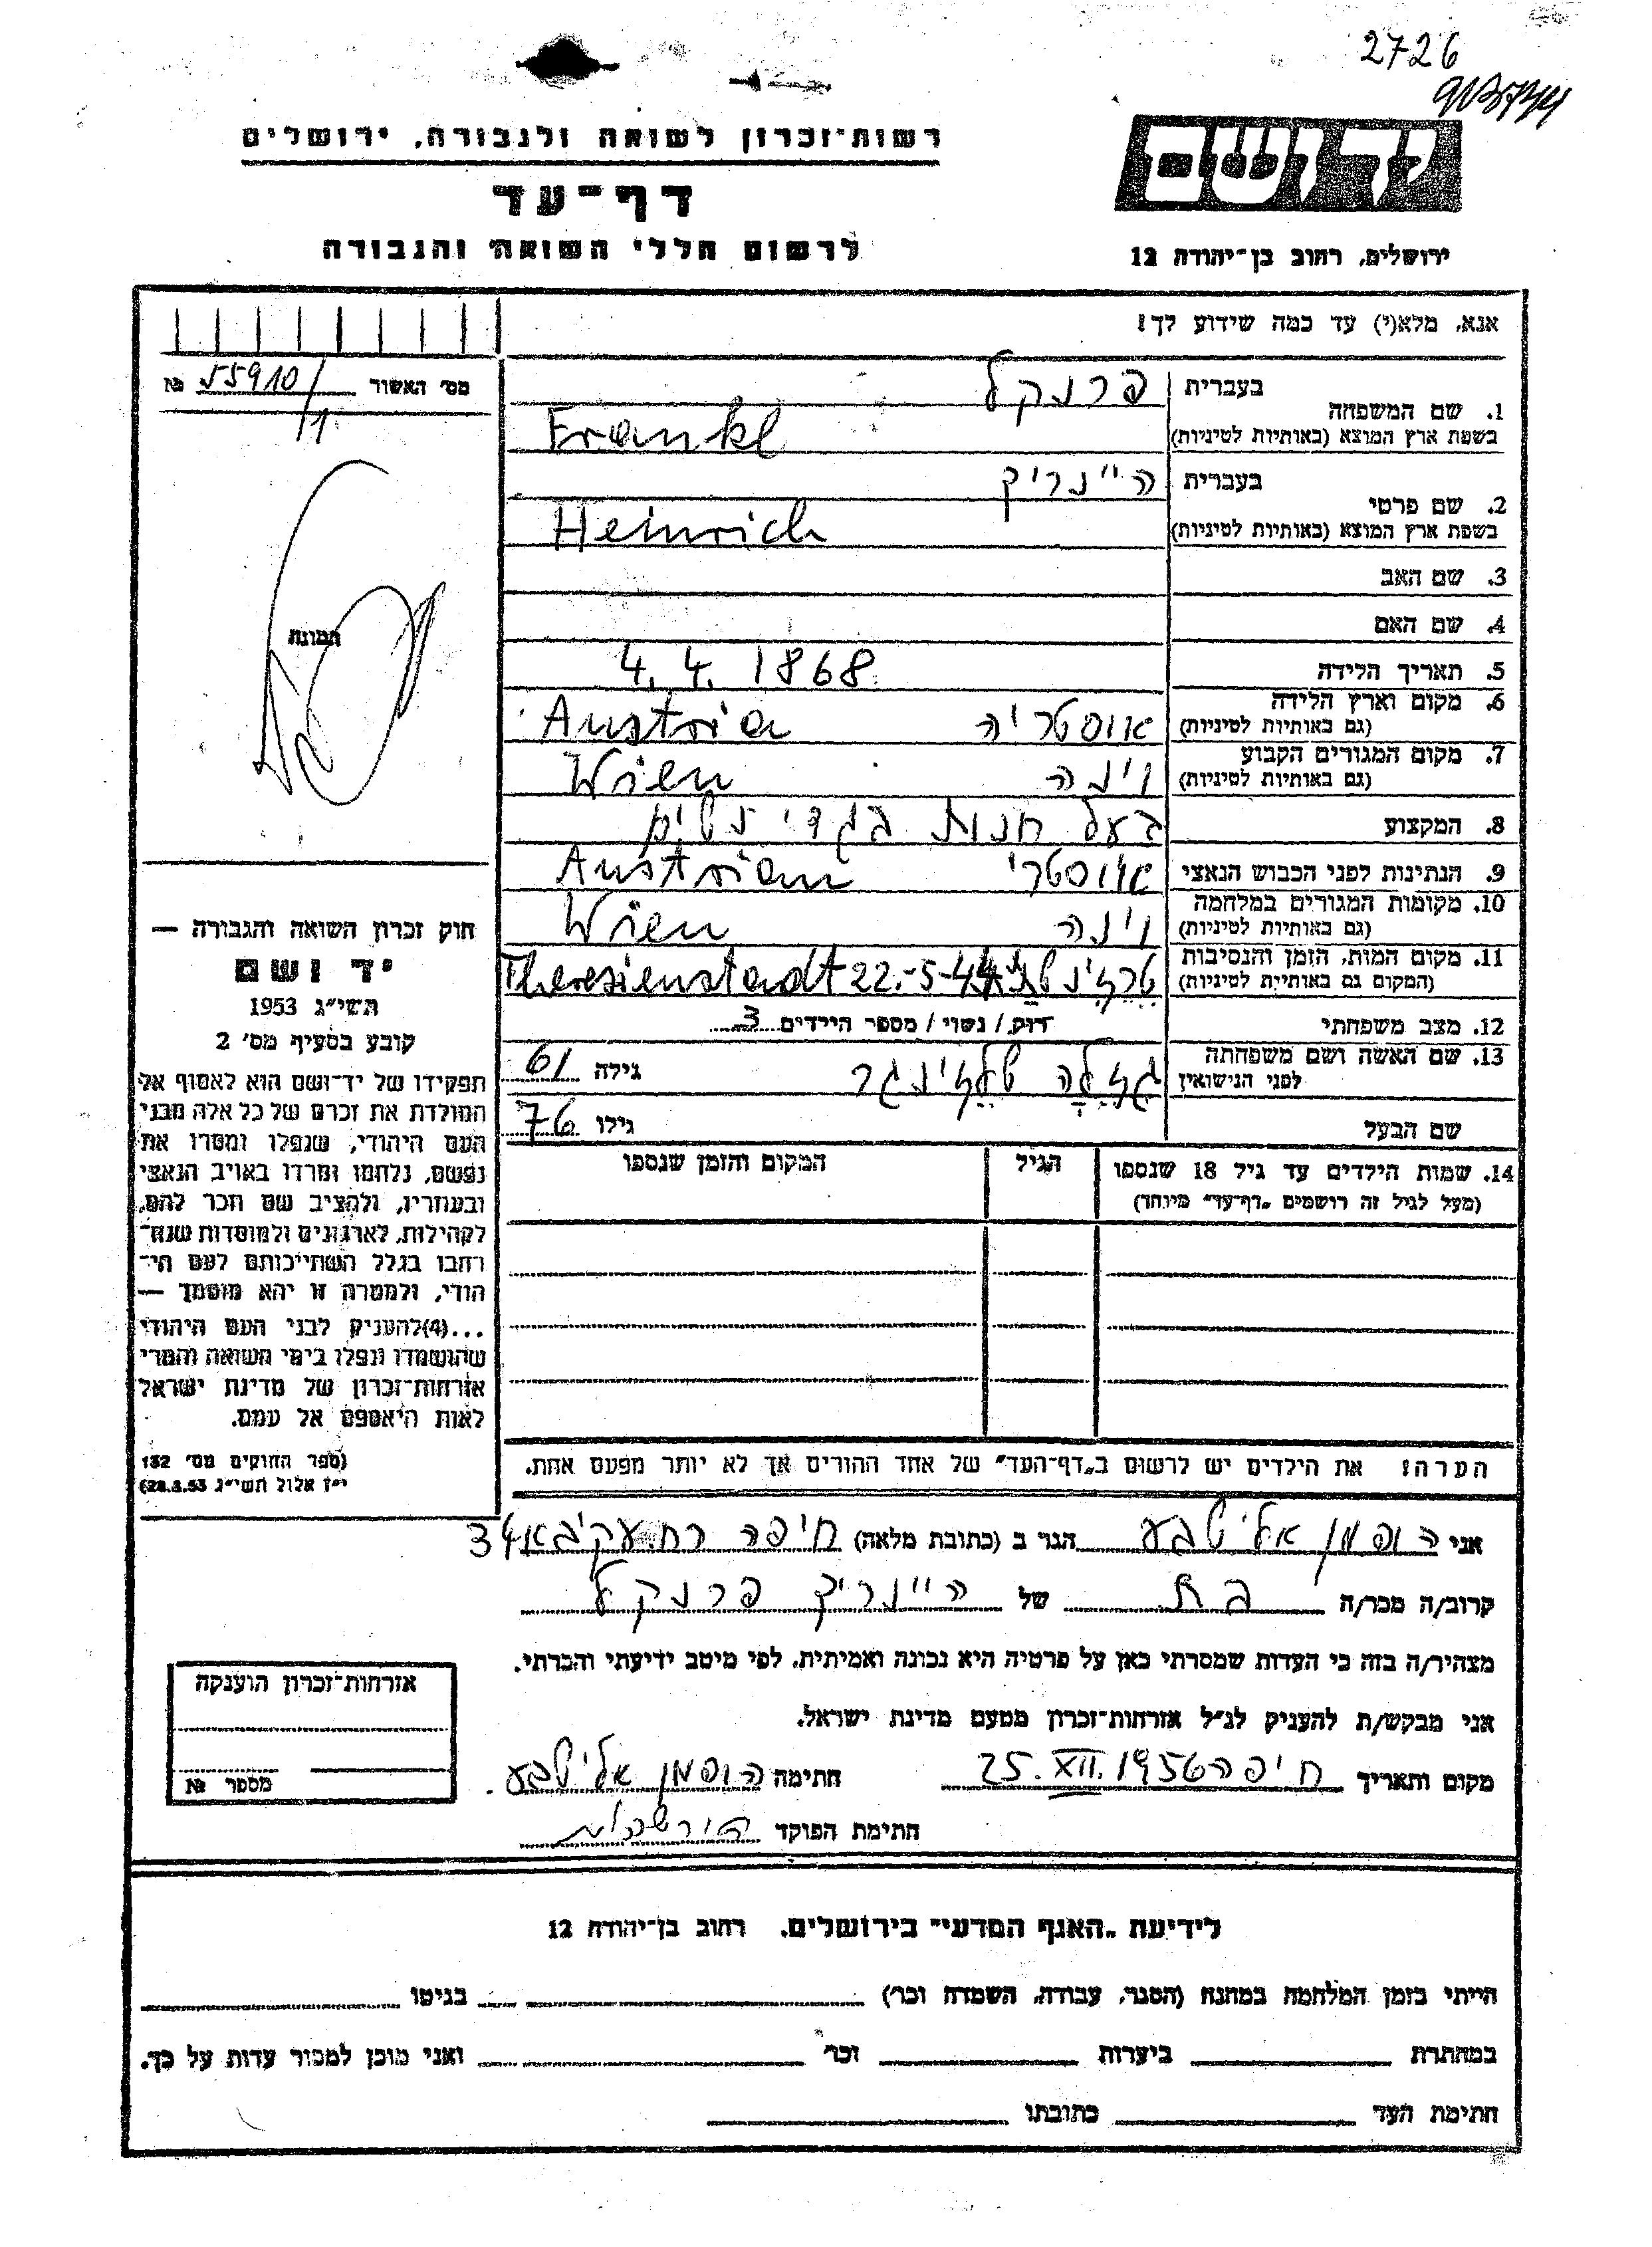 2726
רשות־זכרון לשואה ולגבורה, ירושלים
יד ושם
דף־עד
לרשום חללי השואה והגבורה
ירושלים, רחוב בן־יהודה 12
אנא, מלא(י) עד כמה שידוע לך!
מס׳ האשור 55910/1 №
1. שם המשפחה
בעברית פרנקל
בשפת ארץ המוצא (באותיות לטיניות) Frankl
2. שם פרטי
בעברית היינריך
בשפת ארץ המוצא (באותיות לטיניות) Heinrich
3. שם האב
4. שם האם
תמונה
5. תאריך הלידה 4.4.1868
6. מקום וארץ הלידה אוסטריה Austria
(גם באותיות לטיניות)
7. מקום המגורים הקבוע וינה Wien
(גם באותיות לטיניות)
8. המקצוע בעל חנות בגדי נשים
9. הנתינות לפני הכבוש הנאצי אוסטרי Austrian
10. מקומות המגורים במלחמה וינה Wien
(גם באותיות לטיניות)
11. מקום המות, הזמן והנסיבות Theresienstadt 22.-5-44
(המקום גם באותיות לטיניות)
12. מצב משפחתי רוק/נשוי/מספר הילדים 3
13. שם האשה ושם משפחתה
לפני הנישואין גילה 61
שם הבעל גילו 76
14. שמות הילדים עד גיל 18 שנספו הגיל המקום והזמן שנספו
(מעל לגיל זה רושמים „דף־עד״ מיוחד)
חוק זכרון השואה והגבורה —
יד ושם
תשי״ג 1953
קובע בסעיף מס׳ 2
תפקידו של יד־ושם הוא לאסוף אל
המולדת את זכרם של כל אלה מבני
העם היהודי, שנפלו ומסרו את
נפשם, נלחמו ומרדו באויב הנאצי
ובעוזריו, ולהציב שם וזכר להם,
לקהילות, לארגונים ולמוסדות שנח־
רבו בגלל השתייכותם לעם הי־
הודי, ולמטרה זו יהא מוסמך —
...(4)להעניק לבני העם היהודי
שהושמדו ונפלו בימי השואה והמרי
אזרחות־זכרון של מדינת ישראל
לאות היאספם אל עמם.
(ספר החוקים מס׳ 132
י״ז אלול תשי״ג 28.8.53)
הערה! את הילדים יש לרשום ב„דף־העד״ של אחד ההורים אך לא יותר מפעם אחת.
אני הופמן אלישבע הגר ב (כתובת מלאה) חיפה רח. עקיבא 34
קרוב/ה מכר/ה בת של היינריך פרנקל
מצהיר/ה בזה כי העדות שמסרתי כאן על פרטיה היא נכונה ואמיתית, לפי מיטב ידיעתי והכרתי.
אני מבקש/ת להעניק לנ״ל אזרחות־זכרון מטעם מדינת ישראל.
מקום ותאריך חיפה 25.XII.1956 חתימה הופמן אלישבע
חתימת הפוקד
אזרחות־זכרון הוענקה
מספר №
לידיעת „האגף המדעי״ בירושלים, רחוב בן־יהודה 12
הייתי בזמן המלחמה במחנה (הסגר, עבודה, השמדה וכר׳) בגיטו
במחתרת ביערות וכר׳ ואני מוכן למסור עדות על כך.
חתימת העד כתובתו